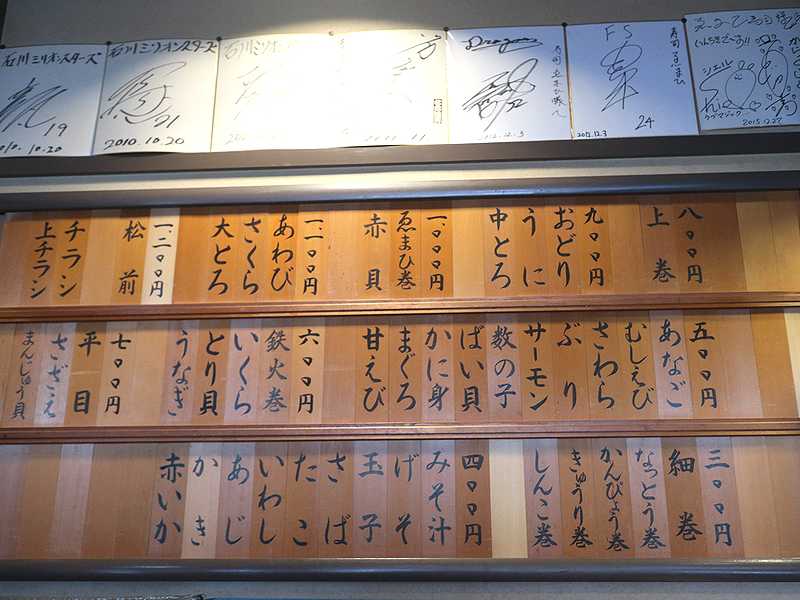 石川ミリオンスターズ
19
2010.10.20
石川ミリオンスターズ
21
2010.10.20
石川ミリオン
Dragons
FS
24
2015.12.3
シェル
ラブマジック
2015.12.27
八〇〇円
上巻
九〇〇円
おどり
うに
中とろ
一、〇〇〇円
ゑまひ巻
赤貝
一、一〇〇円
あわび
さくら
大とろ
一、二〇〇円
松前
チラシ
上チラシ
五〇〇円
あなご
むしえび
さわら
ぶり
サーモン
数の子
ばい貝
かに身
まぐろ
甘えび
六〇〇円
鉄火巻
いくら
とり貝
うなぎ
七〇〇円
平目
さざえ
まんじゅう貝
三〇〇円
細巻
なっとう巻
かんぴょう巻
きゅうり巻
しんこ巻
四〇〇円
みそ汁
げそ
玉子
さば
たこ
いわし
あじ
かき
赤いか